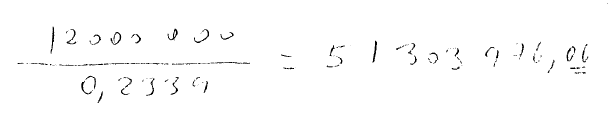 12000 000
0,2339
= 51303976,06